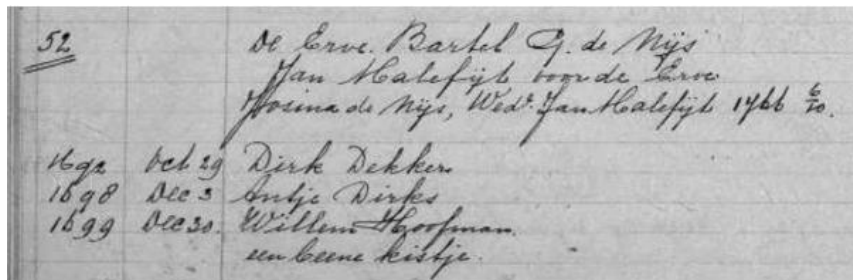 52 De Erve. Bartel G. de Nijs
Jan Malefijt voor de Erve
Josina de Nijs, Wedr. Jan Malefijt 1766 6/10.
1692 Oct 29 Dirk Dekker
1698 Dec 3 Antje Dirks
1699 Dec 30. Willem Hoofman.
een beene kistje.